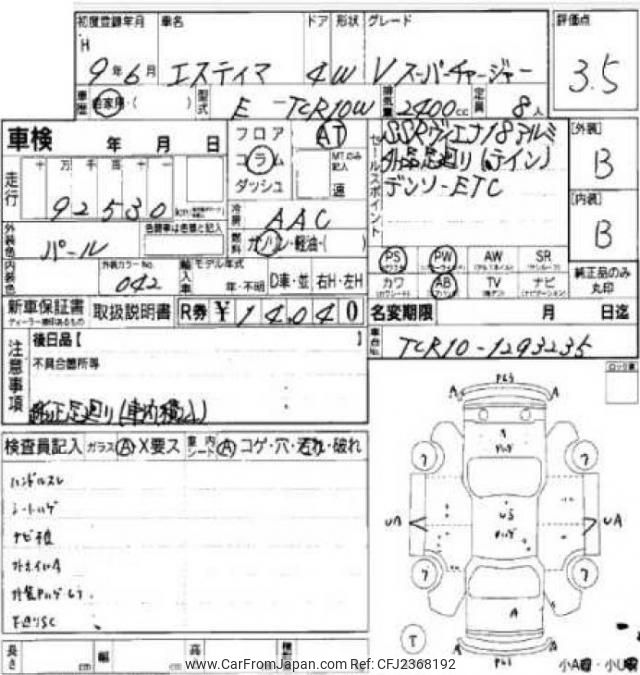 初度登録年月 車名 ドア 形状 グレード 評価点
H
9年6月 エスティマ 4 W V スーパーチャージャー 3.5
車歴 自家用・( ) 型式 E-TCR10W 排気量 2400cc 定員 8人
車検 年 月 日
フロア AT
コラム MTのみ記入
ダッシュ 速
セールスポイント
SSRヴィエナ18アルミ
外品足廻り(テイン)
デンソーETC
[外装]
B
[内装]
B
走行 十 万 千 百 十 一
92530 km
冷房 AAC
燃料 ガソリン・軽油・( )
外装色 パール 色替車は色替と記入
内装色 外装カラーNo. 042
輸入車 モデル年式 年・不明 D車・並 右H・左H
PS PW AW SR
カワ AB TV ナビ
純正品のみ丸印
新車保証書 取扱説明書 R券 ¥ 14040
ディーラー捺印あるもの
名変期限 月 日迄
車台No. TCR10-1293235
注意事項
後日品【 】
不具合箇所等
純正足廻り(車内積込)
検査員記入 ガラス A・X要ス 車内シート A コゲ・穴・汚れ・破れ
ハンドルスレ
シートハゲ
外ホイルA
下廻りSC
A A
A
UA UA
A
A A
T
小A・小U
長さ cm 幅 cm 高
www.CarFromJapan.com Ref: CFJ2368192